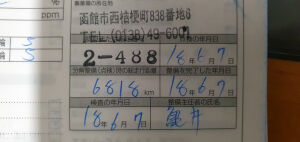 %
ppm
函館市西桔梗町838番地6
TEL (0138)49-6001
の年月日
2-488 18年6月7日
分解整備(点検)時の総走行距離 整備を完了した年月日
6818 km 18年6月7日
検査の年月日 整備主任者の氏名
18年6月7日 亀井